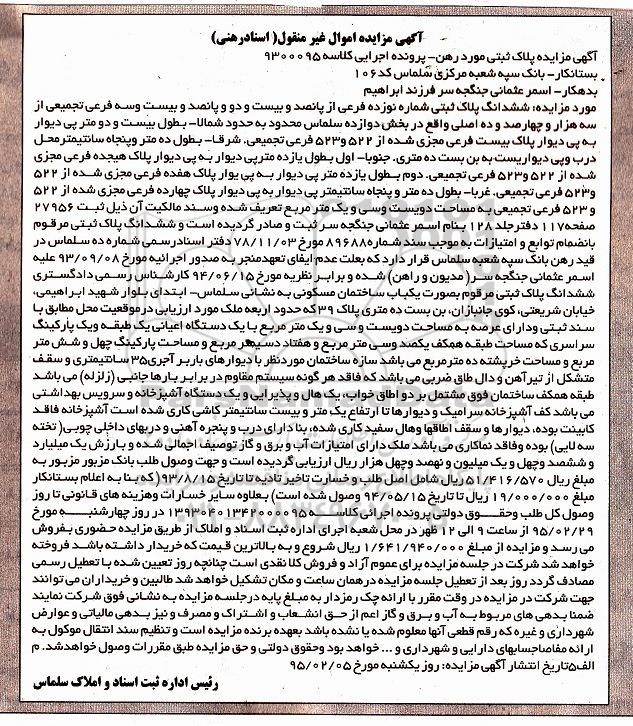 آگهی مزایده اموال غیر منقول( اسنادرهنی)
آگهی مزایده پلاک ثبتی مورد رهن- پرونده اجرایی کلاسه ۹۳۰۰۰۹۵
بستانکار- بانک سپه شعبه مرکزی سلماس کد۱۰۶
بدهکار- اسمر عثمانی جنگجه سر فرزند ابراهیم
مورد مزایده: ششدانگ پلاک ثبتی شماره نوزده فرعی از پانصد و بیست و دو و پانصد و بیست وسه فرعی تجمیعی از
سه هزار و چهارصد و ده اصلی واقع در بخش دوازده سلماس محدود به حدود شمالا- بطول بیست و دو متر پی دیوار
به پی دیوار پلاک بیست فرعی مجزی شده از ۵۲۲ و۵۲۳ فرعی تجمیعی. شرقا- بطول ده متر وپنجاه سانتیمترمحل
درب وپی دیواریست به بن بست ده متری. جنوبا- اول بطول یازده مترپی دیوار به پی دیوار پلاک هیجده فرعی مجزی
شده از ۵۲۲ و۵۲۳ فرعی تجمیعی. دوم بطول یازده متر پی دیوار به پی یوار پلاک هفده فرعی مجزی شده از ۵۲۲
و۵۲۳ فرعی تجمیعی. غربا- بطول ده متر و پنجاه سانتیمتر پی دیوار به پی دیوار پلاک چهارده فرعی مجزی شده از ۵۲۲
و ۵۲۳ فرعی تجمیعی به مساحت دویست وسی و یک متر مربع تعریف شده وسند مالکیت آن ذیل ثبت ۲۷۹۵۶
صفحه۱۱۷ دفترجلد ۱۲۸ بنام اسمر عثمانی جنگجه سر ثبت و صادر گردیده است و ششدانگ پلاک ثبتی مرقوم
بانضمام توابع و امتیازات به موجب سند شماره۸۹۶۸۸ مورخ ۷۸/۱۱/۰۳ دفتر اسنادرسمی شماره ده سلماس در
قید رهن بانک سپه شعبه سلماس قرار دارد که بعلت عدم ایفای تعهدمنجر به صدور اجرائیه مورخ ۹۳/۰۹/۰۸ علیه
اسمر عثمانی جنگجه سر( مدیون و راهن) شده و برابر نظریه مورخ ۹۴/۰۶/۱۵ کارشناس رسمی دادگستری
ششدانگ پلاک ثبتی مرقوم بصورت یکباب ساختمان مسکونی به نشانی سلماس- ابتدای بلوار شهید ابراهیمی،
خیابان شریعتی، کوی جانبازان، بن بست ده متری پلاک ۳۹ که حدود اربعه ملک مورد ارزیابی درموقعیت محل مطابق با
سند ثبتی ودارای عرصه به مساحت دویست و سی و یک متر مربع با یک دستگاه اعیانی یک طبقه ویک پارکینگ
سراسری که مساحت طبقه همکف یکصد وسی متر مربع و هفتاد دسیمتر مربع و مساحت پارکینگ چهل و شش متر
مربع و مساحت خرپشته ده مترمربع می باشد سازه ساختمان موردنظر با دیوارهای باربر آجری۳۵ سانتیمتری و سقف
متشکل از تیرآهن و دال طاق ضربی می باشد که فاقد هر گونه سیستم مقاوم در برابر بارها جانبی (زلزله) می باشد
طبقه همکف ساختمان فوق مشتمل بر دو اطاق خواب، یک هال و پذیرایی و یک دستگاه آشپزخانه و سرویس بهداشتی
می باشد کف آشپزخانه سرامیک و دیوارها تا ارتفاع یک متر و بیست سانتیمتر کاشی کاری شده است آشپزخانه فاقد
کابینت بوده، دیوارها و سقف اطاقها وهال سفید کاری شده، بنا دارای درب و پنجره آهنی و دربهای داخلی چوبی( تخته
سه لایی) بوده وفاقد نماکاری می باشد ملک دارای امتیازات آب و برق و گاز توصیف اجمالی شده و با ارزش یک میلیارد
و ششصد وچهل و یک میلیون و نهصد وچهل هزار ریال ارزیابی گردیده است و جهت وصول طلب بانک مزبور مزبور به
مبلغ ریال ۵۱/۴۱۶/۵۷۰ ریال شامل اصل طلب و خسارت تاخیر تادیه تا تاریخ ۹۳/۸/۱۵( که بنا به اعلام بستانکار
مبلغ ۱۹/۰۰۰/۰۰۰ ریال تا تاریخ ۹۴/۰۵/۱۵ وصول شده است) بعلاوه سایر خسارات وهزینه های قانونی تا روز
وصول کل طلب وحقوق دولتی پرونده اجرائی کلاسه ۱۳۹۳۰۴۰۱۳۴۲۰۰۰۰۹۵ در روز چهارشنبه مورخ
۹۵/۰۲/۲۹ از ساعت ۹ الی ۱۲ ظهر در محل شعبه اجرای اداره ثبت اسناد و املاک از طریق مزایده حضوری بفروش
می رسد و مزایده از مبلغ ۱/۶۴۱/۹۴۰/۰۰۰ ریال شروع و به بالاترین قیمت که خریدار داشته باشد فروخته
خواهد شد شرکت در جلسه مزایده برای عموم آزاد و فروش کلا نقدی است چنانچه روز تعیین شده با تعطیل رسمی
مصادف گردد روز بعد از تعطیل جلسه مزایده در همان ساعت و مکان تشکیل خواهد شد طالبین و خریداران می توانند
جهت شرکت در مزایده در وقت مقرر با ارائه چک رمزدار به مبلغ پایه در جلسه مزایده به نشانی فوق شرکت نمایند
ضمنا بدهی های مربوط به آب و برق و گاز اعم از حق انشعاب و اشتراک و مصرف و نیز بدهی مالیاتی و عوارض
شهرداری و غیره که رقم قطعی آنها معلوم شده یا نشده باشد بعهده برنده مزایده است و تنظیم سند انتقال موکول به
ارائه مفاصاحسابهای دارایی و شهرداری و ... خواهد بود وحقوق دولتی و حق مزایده طبق مقررات وصول خواهدشد. م
الف۵تاریخ انتشار آگهی مزایده: روز یکشنبه مورخ ۹۵/۰۲/۰۵
رئیس اداره ثبت اسناد و املاک سلماس